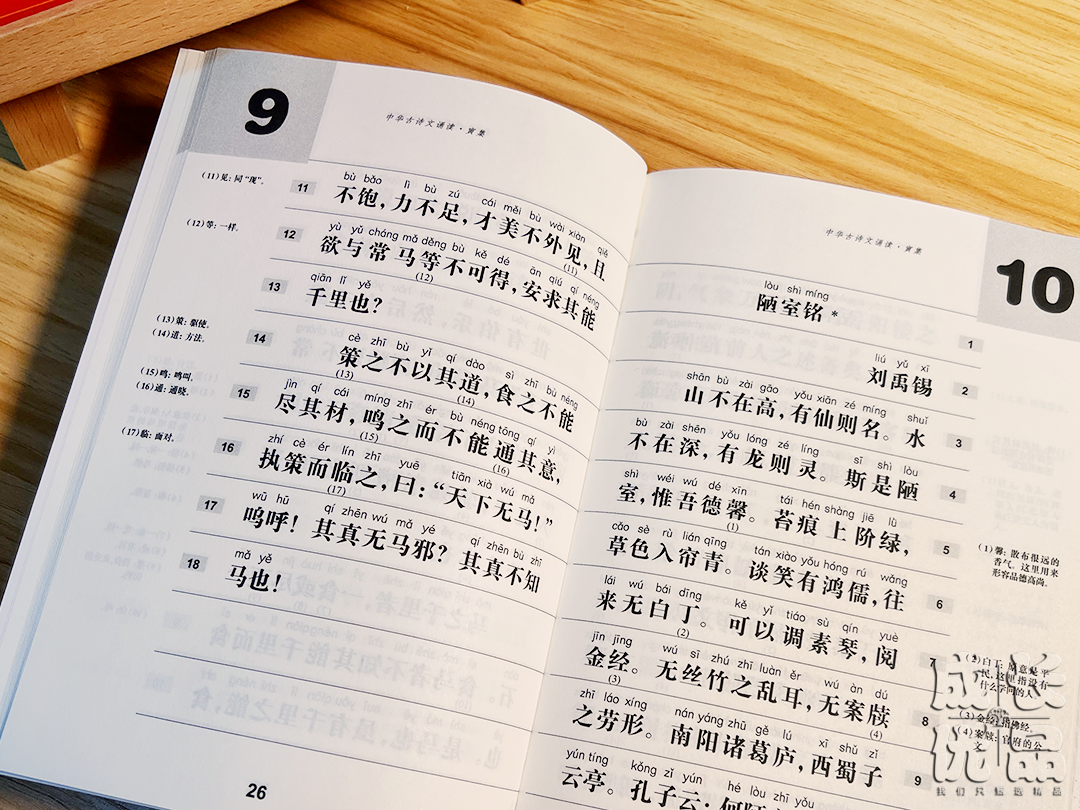 9
中华古诗文诵读·寅集
(11)见：同“现”。
bù bǎo lì bù zú cái měi bù wài xiàn qiě
11 不饱，力不足，才美不外见，且
(11)
(12)等：一样。
yù yǔ cháng mǎ děng bù kě dé ān qiú qí néng
12 欲与常马等不可得，安求其能
(12)
qiān lǐ yě
13 千里也？
(13)策：驱使。
(14)道：方法。
cè zhī bù yǐ qí dào sì zhī bù néng
14 策之不以其道，食之不能
(13) (14)
(15)鸣：鸣叫。
(16)通：通晓。
jìn qí cái míng zhī ér bù néng tōng qí yì
15 尽其材，鸣之而不能通其意，
(15) (16)
(17)临：面对。
zhí cè ér lín zhī yuē tiān xià wú mǎ
16 执策而临之，曰：“天下无马！”
(17)
wū hū qí zhēn wú mǎ yé qí zhēn bù zhī
17 呜呼！其真无马邪？其真不知
mǎ yě
18 马也！
26
中华古诗文诵读·寅集
10
lòu shì míng
陋室铭* 1
liú yǔ xī
刘禹锡 2
shān bù zài gāo yǒu xiān zé míng shuǐ
山不在高，有仙则名。水 3
bù zài shēn yǒu lóng zé líng sī shì lòu
不在深，有龙则灵。斯是陋 4
shì wéi wú dé xīn tái hén shàng jiē lǜ
室，惟吾德馨。苔痕上阶绿， 5
(1)
(1)馨：散布很远的
香气。这里用来
形容品德高尚。
cǎo sè rù lián qīng tán xiào yǒu hóng rú wǎng
草色入帘青。谈笑有鸿儒，往 6
lái wú bái dīng kě yǐ tiáo sù qín yuè
来无白丁。可以调素琴，阅 7
(2)
(2)白丁：原意是平
民，这里指没有
什么学问的人。
jīn jīng wú sī zhú zhī luàn ěr wú àn dú
金经。无丝竹之乱耳，无案牍 8
(3) (4)
(3)金经：指佛经。
(4)案牍：官府的公
文。
zhī láo xíng nán yáng zhū gě lú xī shǔ zǐ
之劳形。南阳诸葛庐，西蜀子 9
yún tíng kǒng zǐ yún hé lòu zhī yǒu
云亭。孔子云：何陋
成长优品
我们只甄选精品